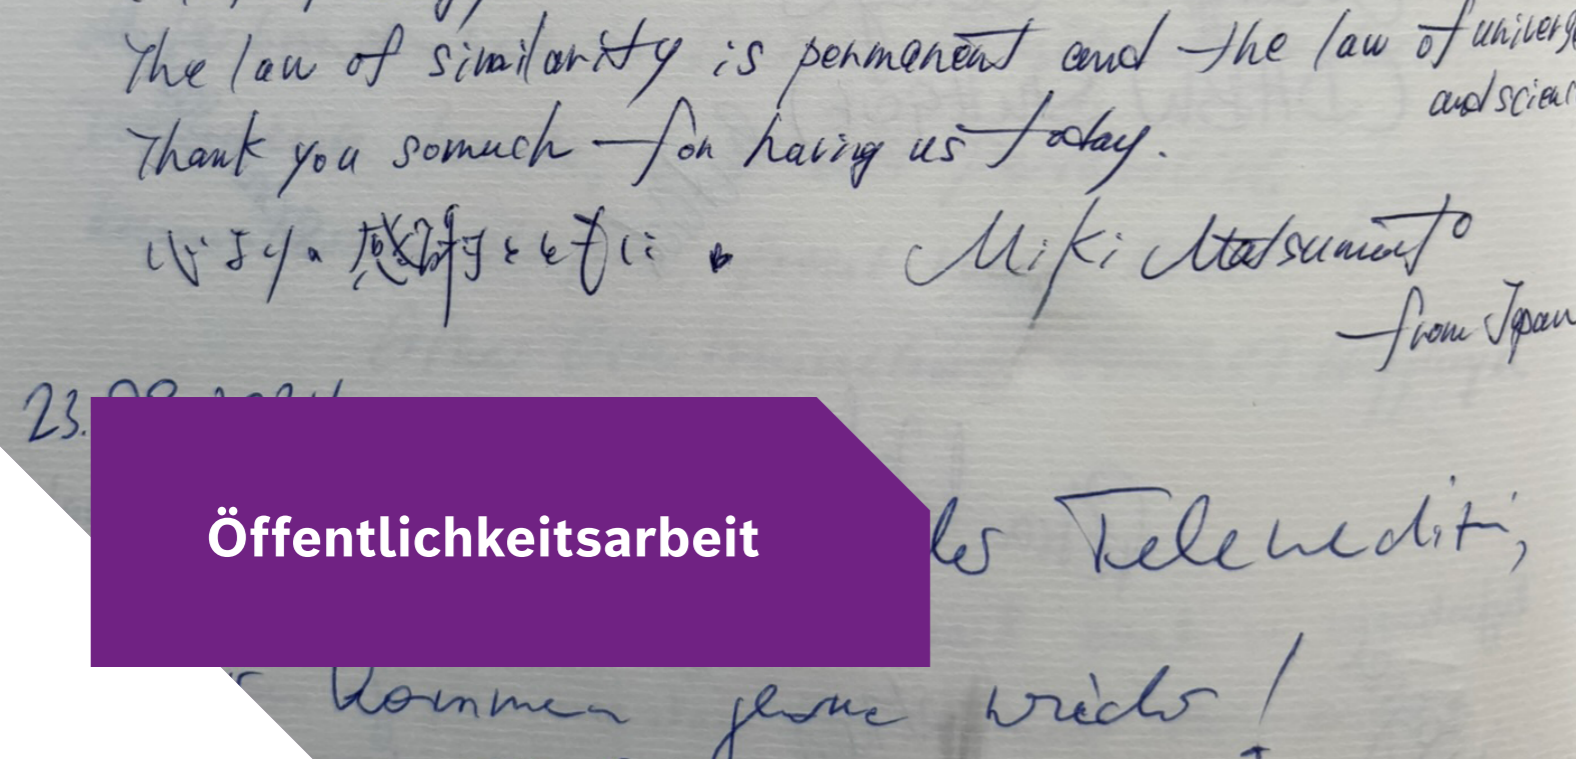 The law of similarity is permanent and the law of univers
and scien
Thank you somuch for having us today.
心より感謝とともに
Miki Matsumoto
from Japan
23.
Öffentlichkeitsarbeit
kommen gerne wieder!